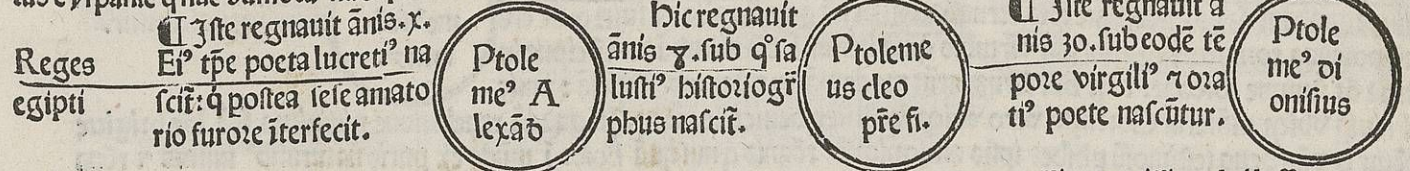 Reges
egipti
¶ Iste regnauit ãnis.x.
Eiꝰ tp̃e poeta lucretiꝰ na
scit̃: q̃ postea sese amato
rio furore ĩterfecit.
Ptole
meꝰ A
lexãd̃
Hic regnauit
ãnis 8.sub q° sa
lustiꝰ historiogr̃
phus nascit̃.
Ptoleme
us cleo
pr̃e fi.
¶ Iste regnauit a
nis 30.sub eodẽ tẽ
pore virgiliꝰ ⁊ ora
tiꝰ poete nascũtur.
Ptole
meꝰ di
onisius